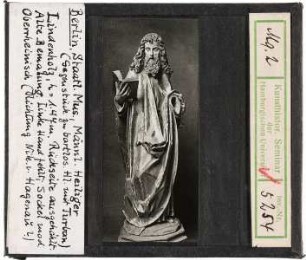 Berlin, Staatl. Mus., Männl. Heiliger
(Gegenstück zu bartlos. Hl. mit Turban)
Lindenholz, h = 1.47 m, Rückseite ausgehöhlt
Alte Bemalung, linke Hand fehlt, Sockel mod.
Oberrheinisch (Richtung Nik. v. Hagenau ?)
Mg. 2
Kunsthistor. Seminar
der
Hamburgischen Universität
Inv. Nr.
5254